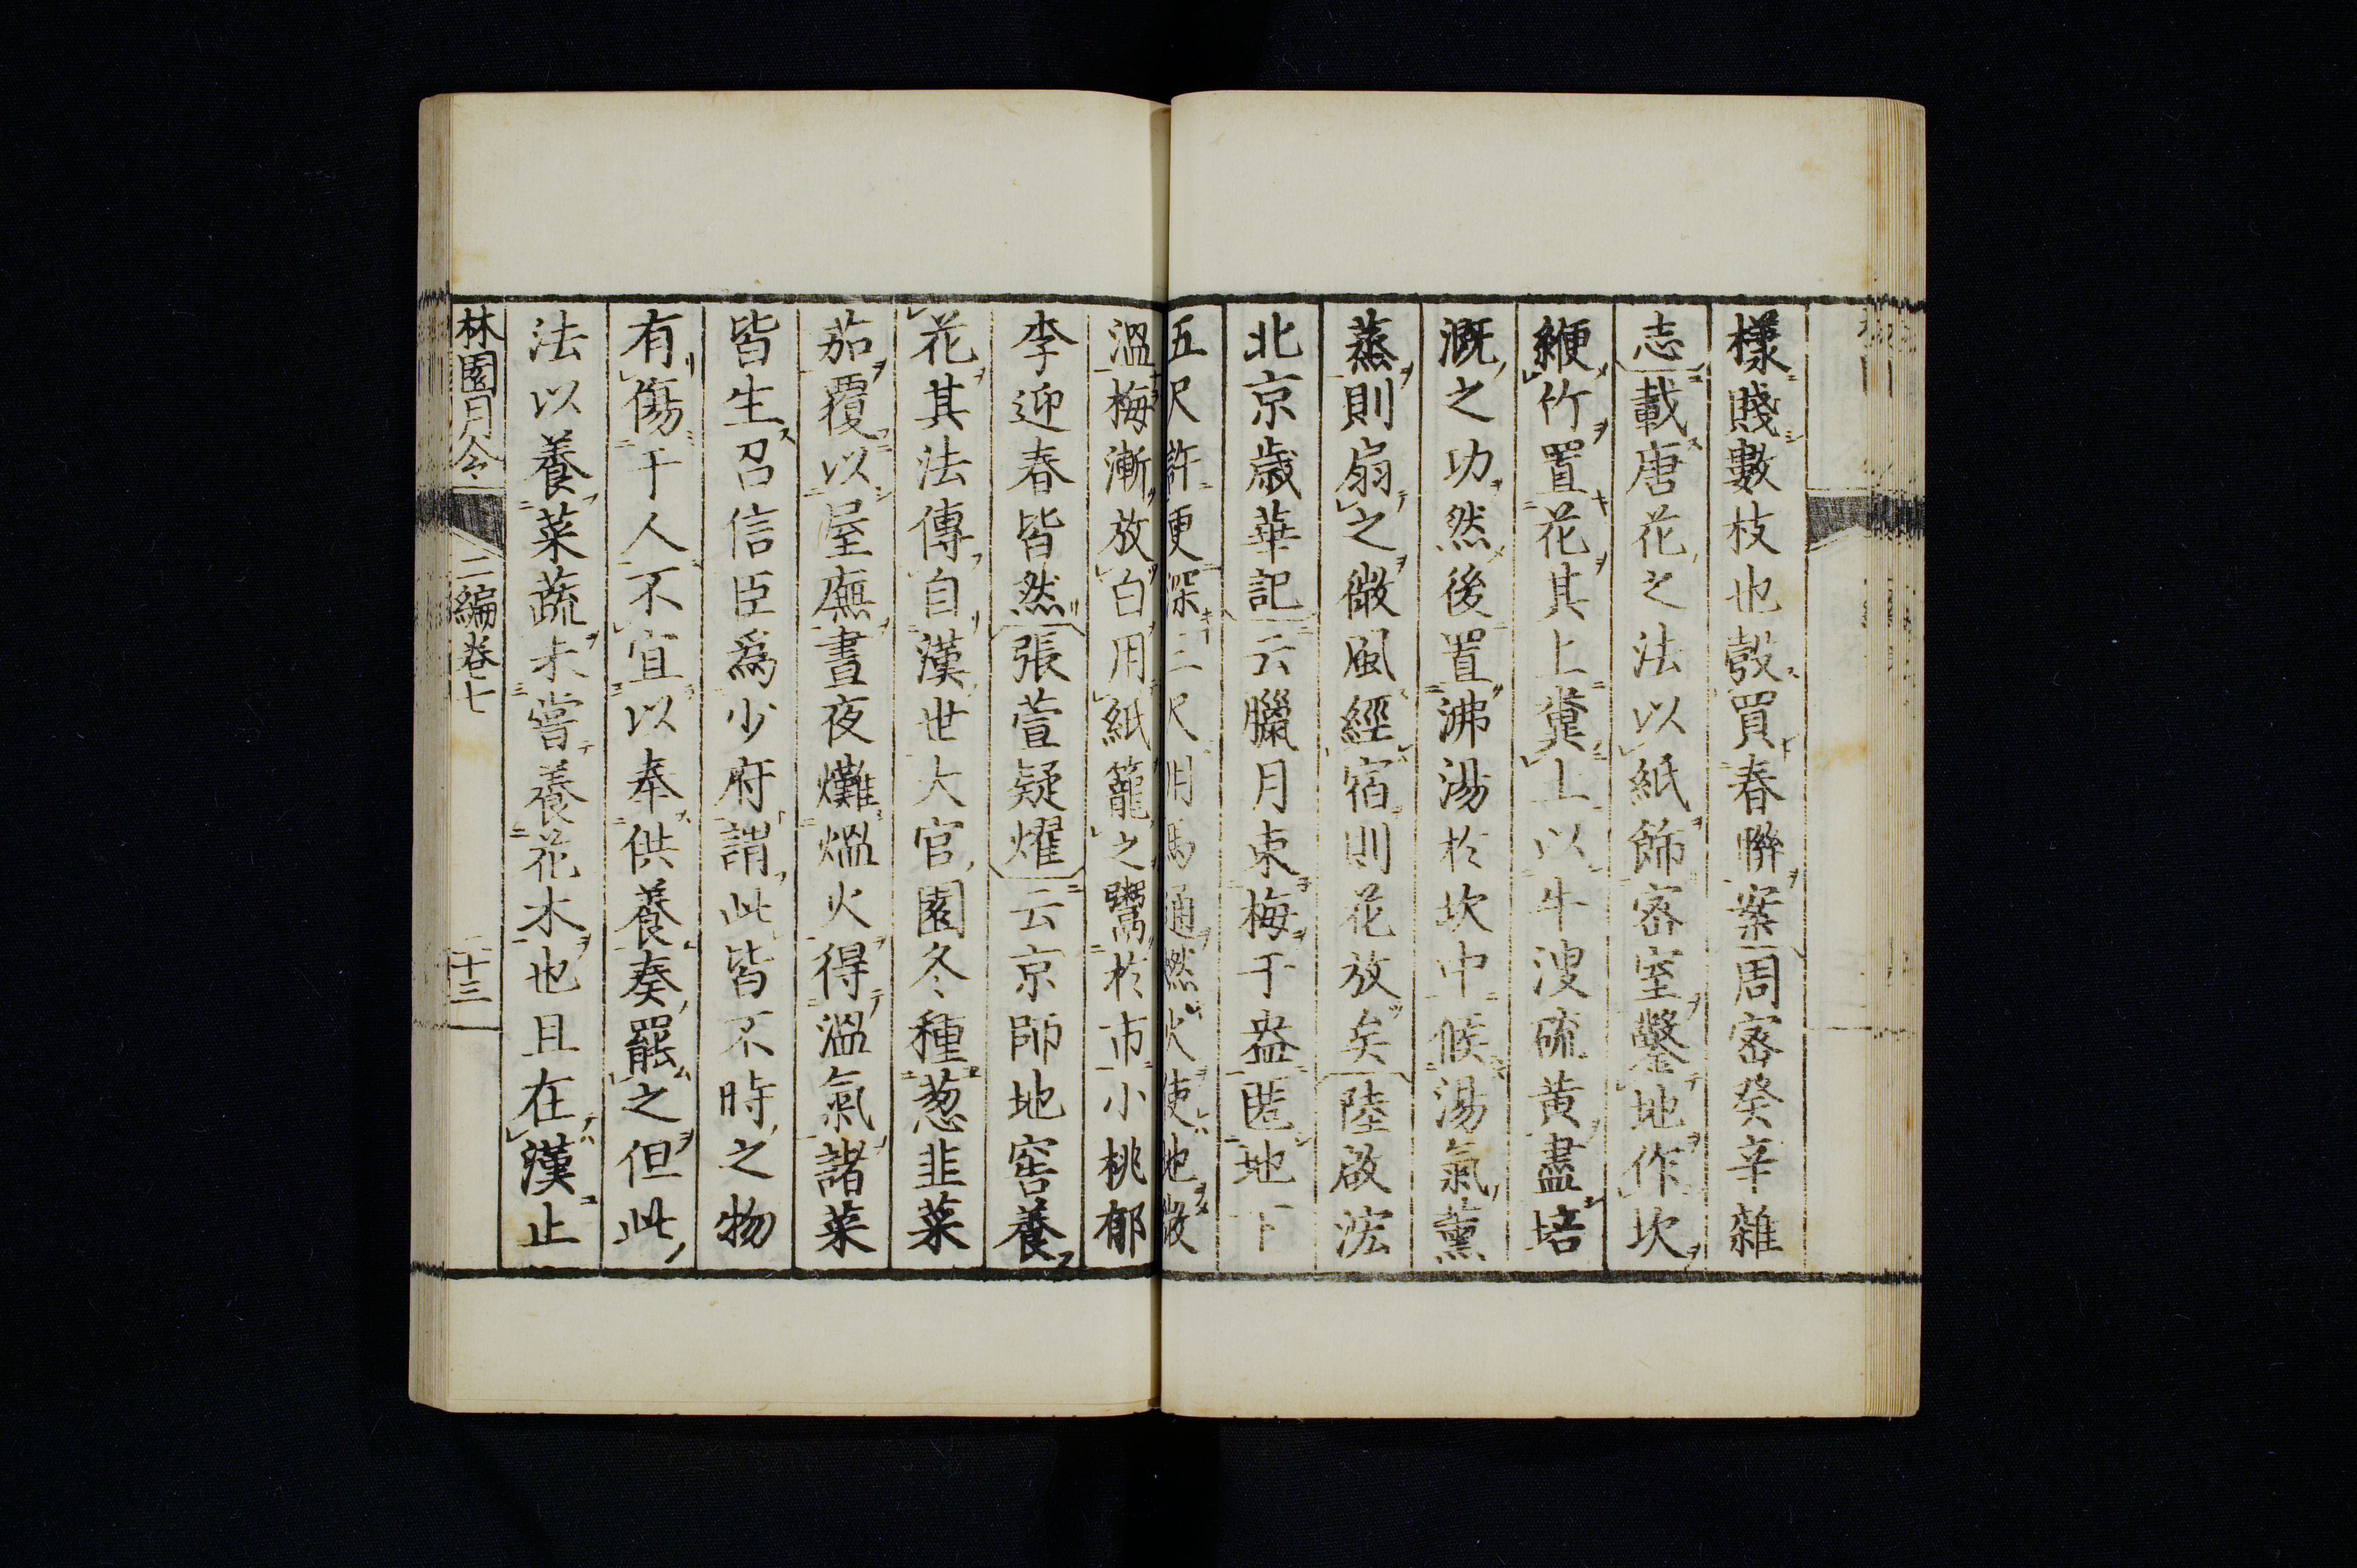 樣賤數枝也彀買春聯案周密癸辛雜
志載唐花之法以紙飾密室鑿地作坎
緶竹置花其上糞土以牛溲硫黄盡培
溉之功然後置沸湯於坎中候湯氣薰
蒸則扇之微風經宿則花放矣陸啟浤
北京歳華記云臘月束梅于盎匿地下
五尺許更深三尺用馬通燃火使地微
溫梅漸放白用紙籠之鬻於市小桃郁
李迎春皆然張萱疑燿云京師地窖養
花其法傳自漢世大官園冬種葱韭菜
茹覆以屋廡晝夜㸐熅火得溫氣諸菜
皆生召信臣爲少府謂此皆不時之物
有傷于人不宜以奉供養奏罷之但此
法以養菜蔬未嘗養花木也且在漢止
林園月令 二編卷七 十三